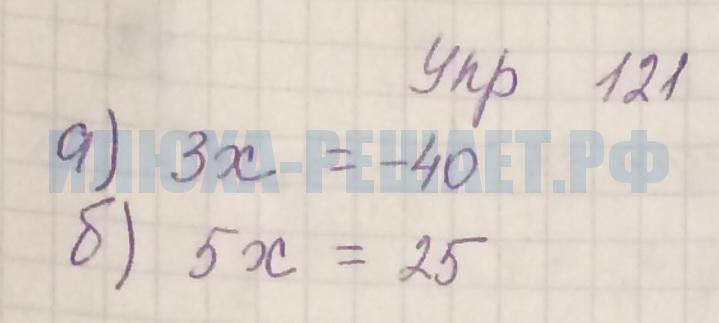 Упр 121
а) 3x = -40
ИЛЮХА-РЕШАЕТ.РФ
б) 5x = 25